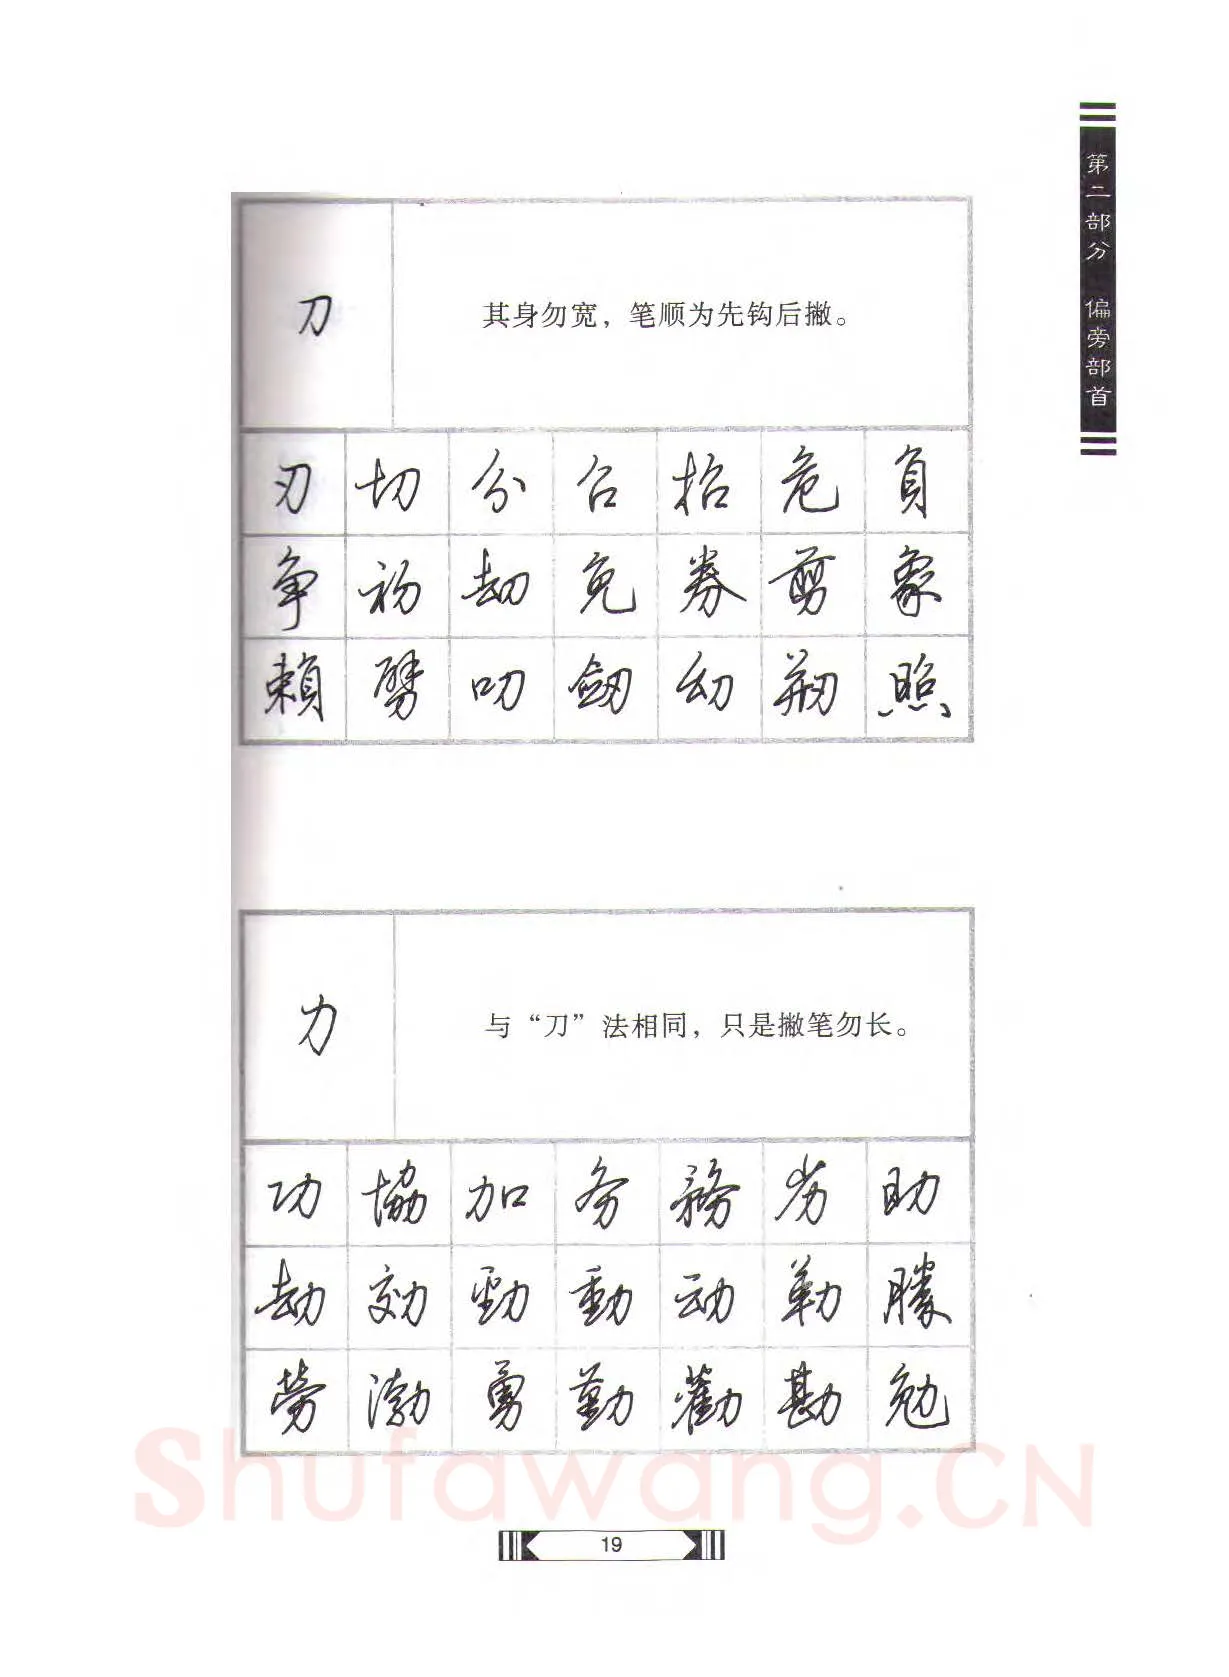 第二部分 偏旁部首
刀
其身勿宽，笔顺为先钩后撇。
刃 切 分 召 招 危 負
争 初 劫 免 券 剪 象
賴 劈 叨 劒 幻 剏 照
力
与“刀”法相同，只是撇笔勿长。
功 協 加 务 務 劣 助
劫 効 勁 動 动 勒 勝
勞 渤 勇 勤 勸 勘 勉
Shufawang.CN
19